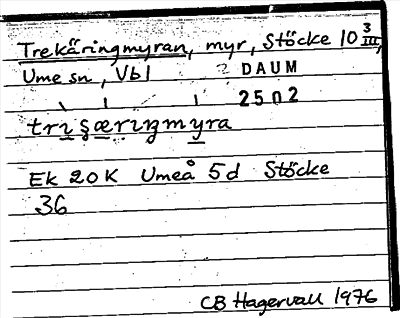 Trekäringmyran, myr, Stöcke 10 3/III,
Ume sn, Vbl ? DAUM
2502
triʂæriŋmyra
Ek 20K Umeå 5d Stöcke
36
CB Hagervall 1976